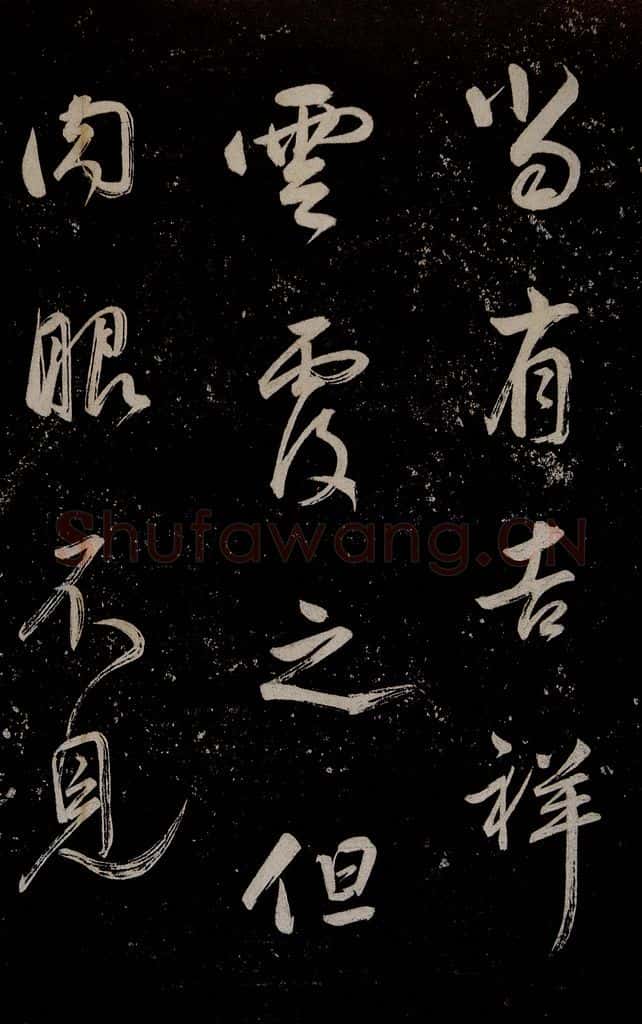 當有吉祥
雲覆之但
肉眼不見
Shufawang.CN